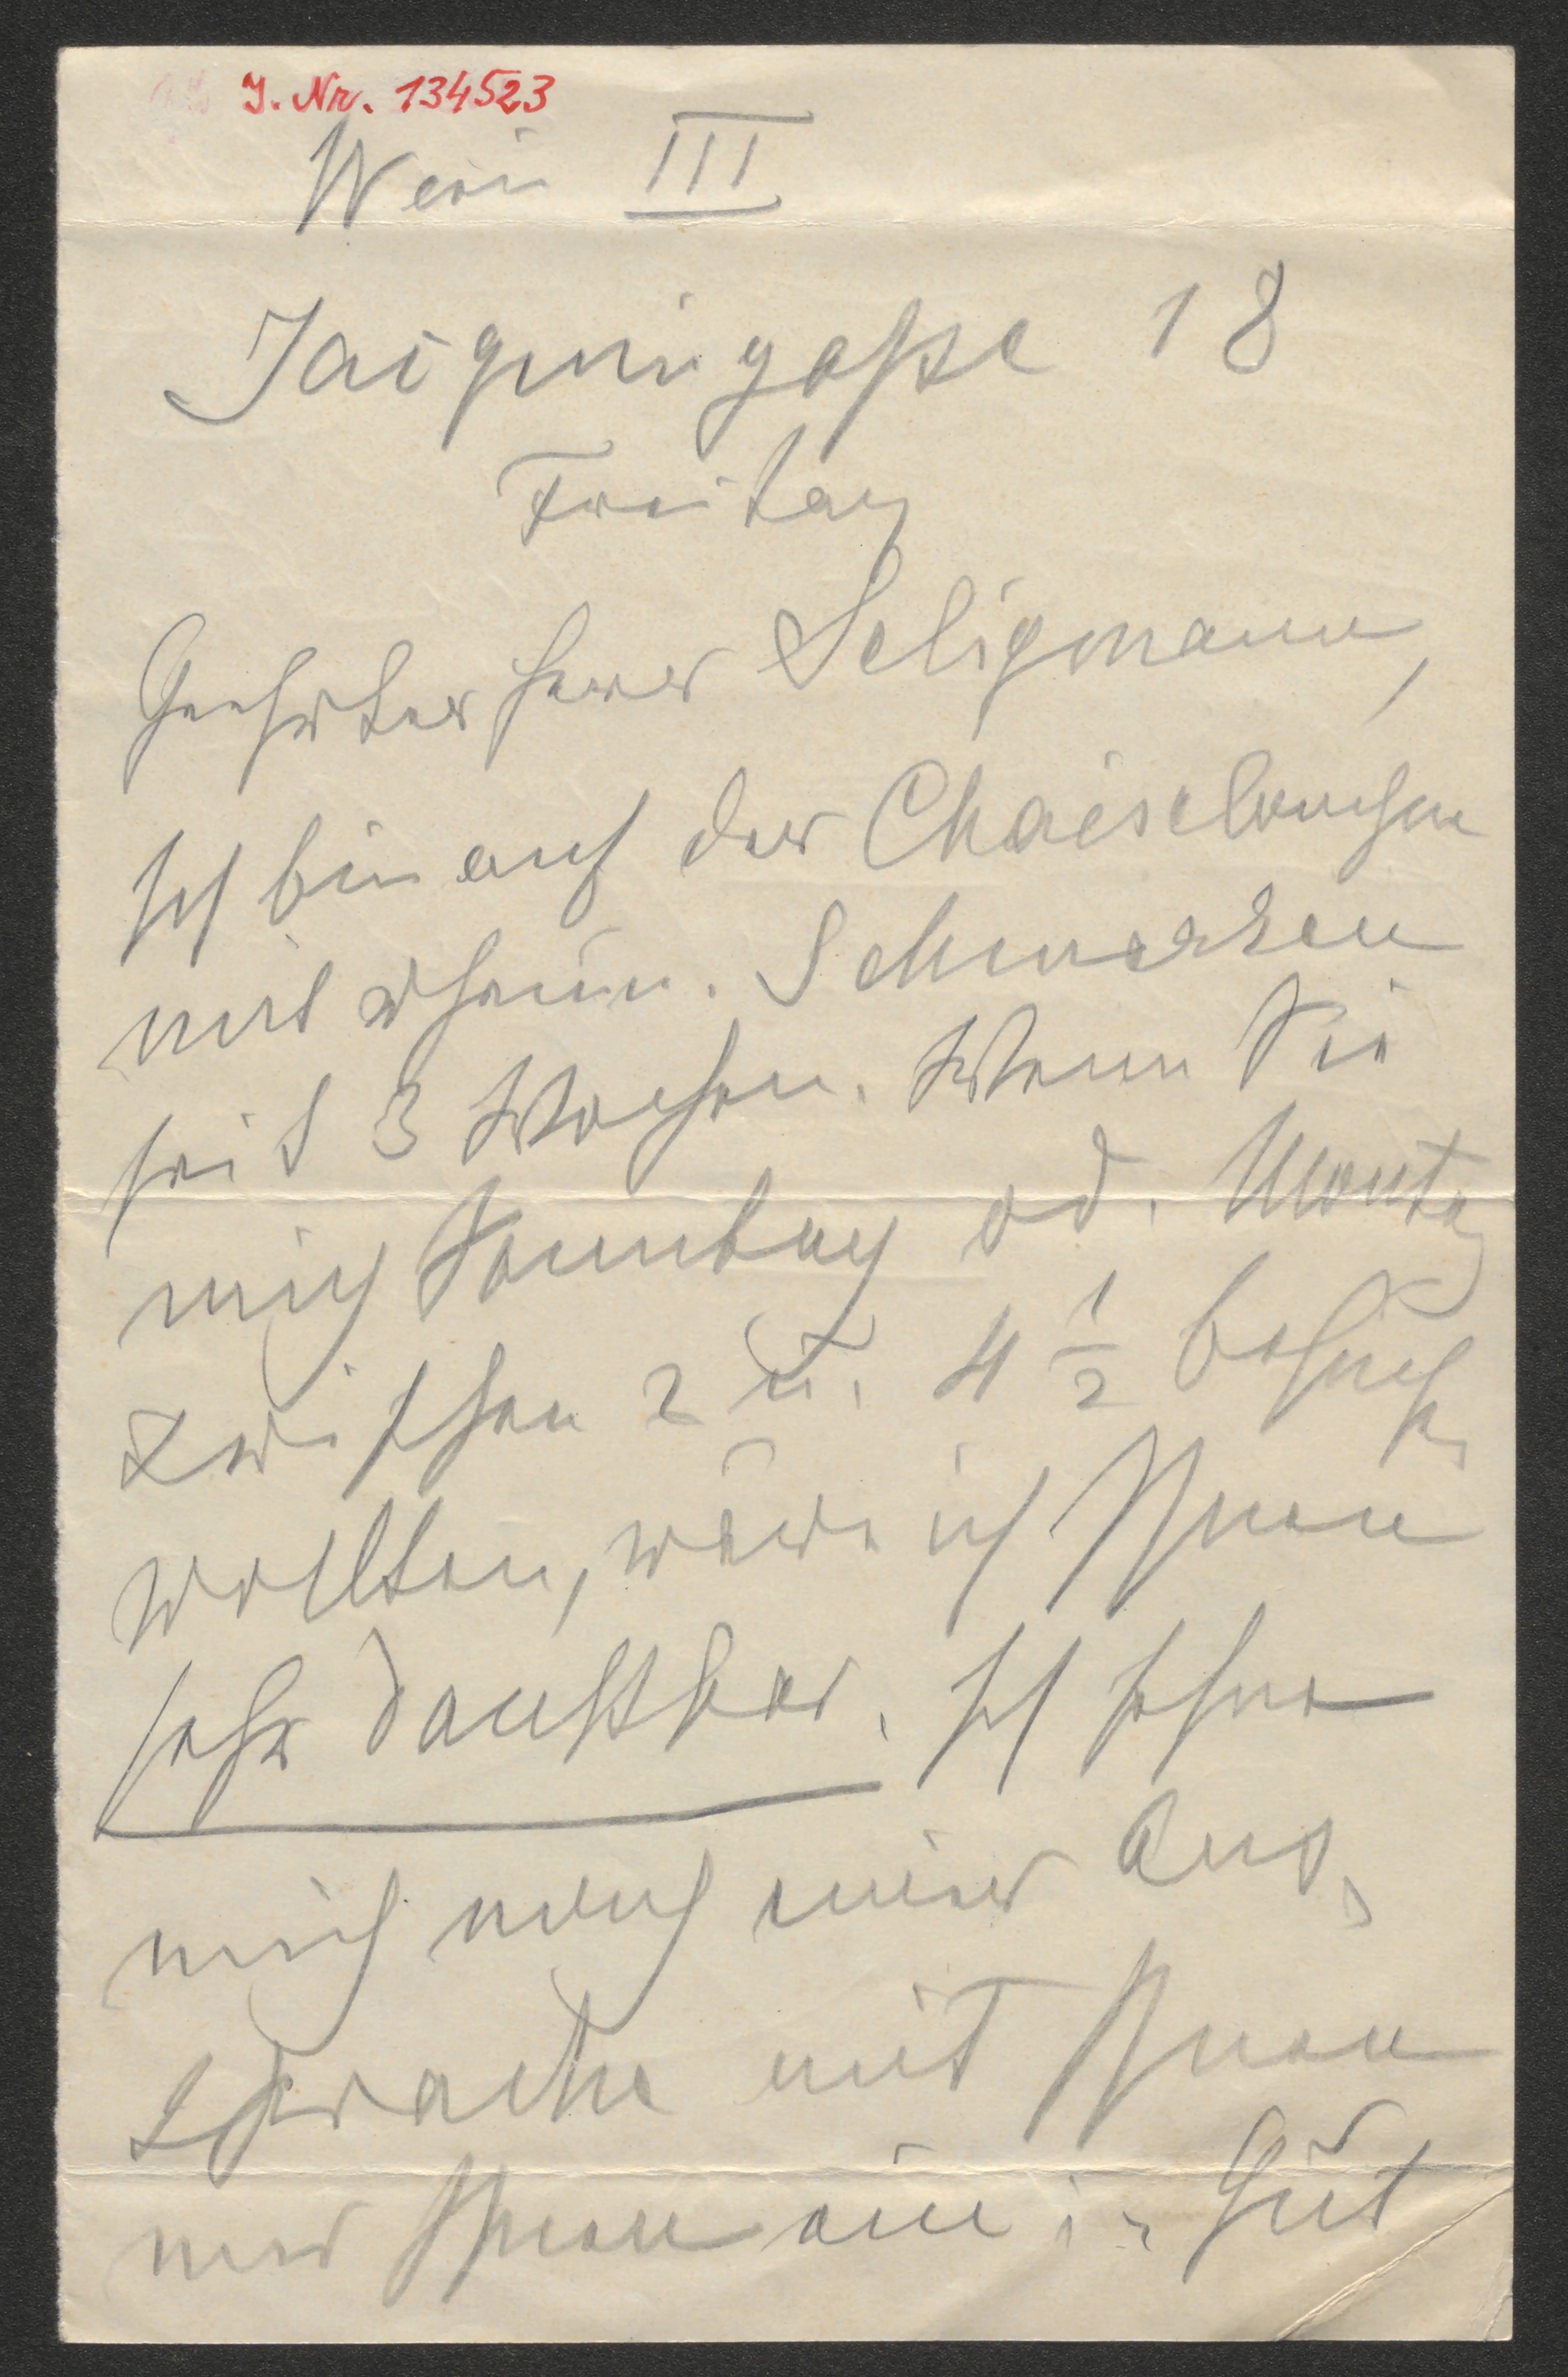 J. Nr. 134523
Wien III
Jacquingasse 18
Freitag
Geehrter Herr Seligmann,
Ich bin auf der Chaiselongue
mit rheum. Schmerzen
seit 3 Wochen. Wenn Sie
mich Sonntag od. Montag
zwischen 2 u. 4 1/2 besuchen
wollten, wäre ich Ihnen
sehr dankbar. Ich sehne
mich nach einer Aus-
sprache mit Ihnen
Ihnen ein